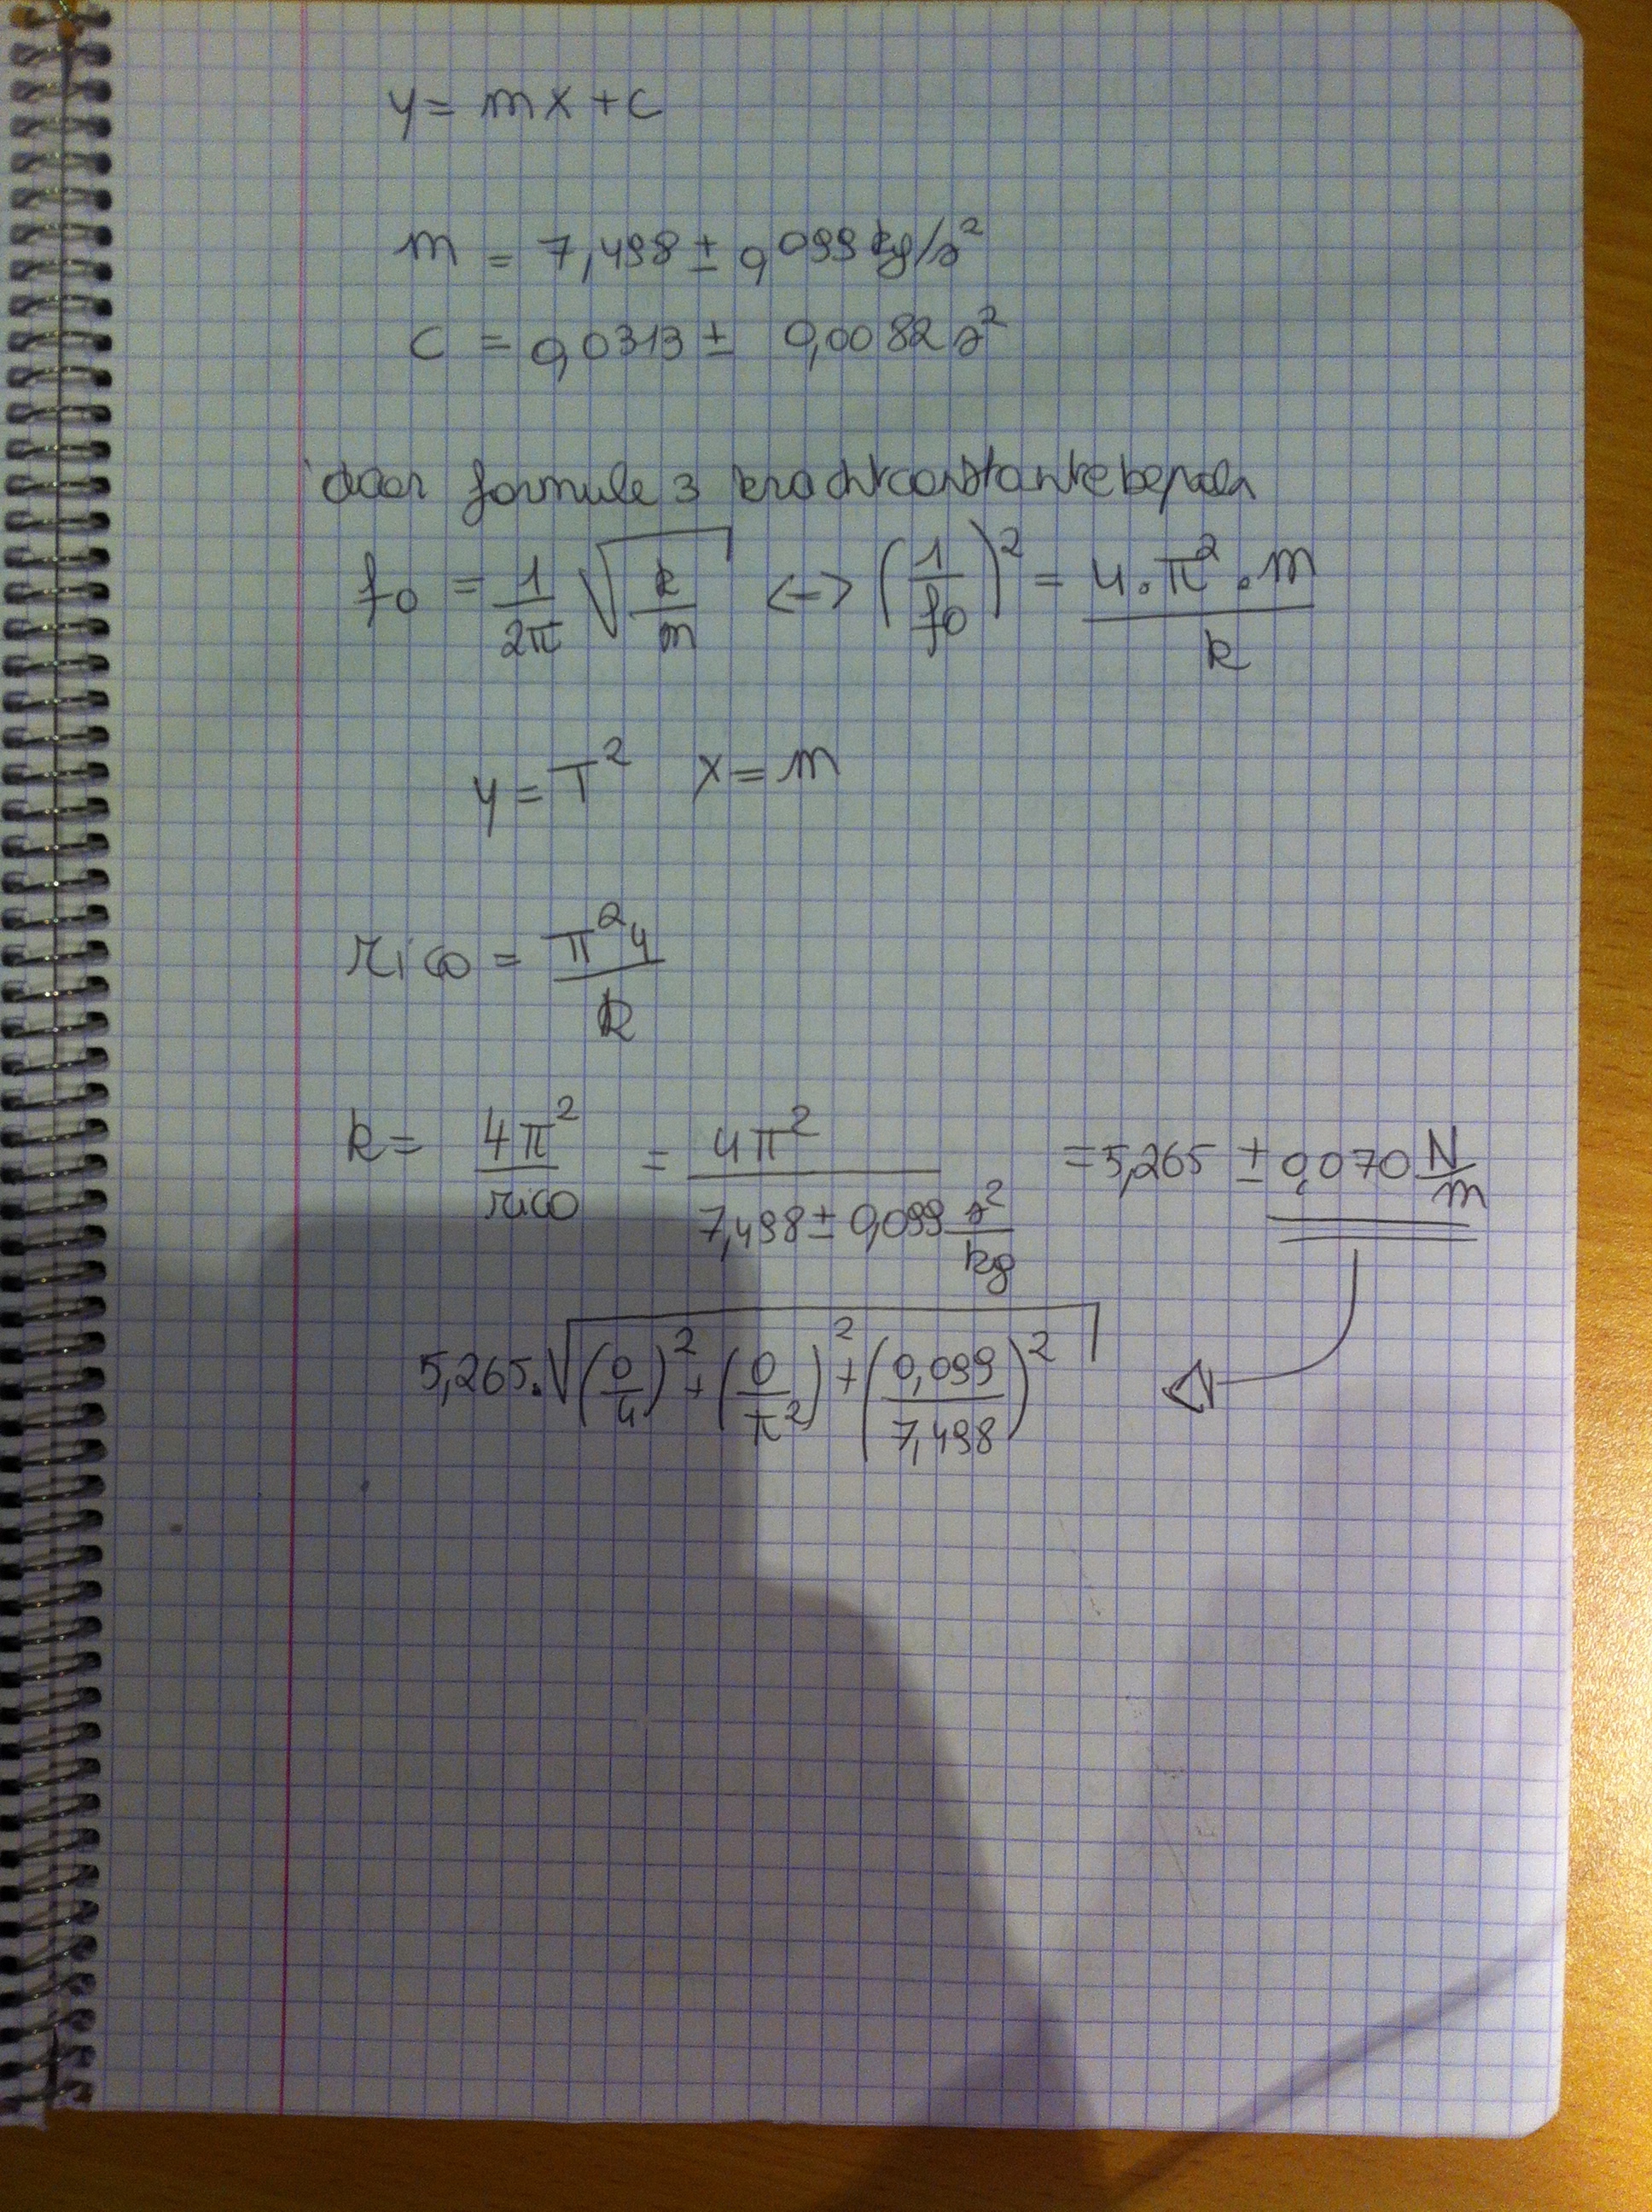 y = mx + c
m = 7,498 ± 0,099 kg/s²
c = 0,0313 ± 0,0082 s²
door formule 3 krachtconstante bepalen
f₀ = 1/2π √(k/m) <-> (1/f₀)² = 4.π².m/k
y = T² x = m
rico = π²4/k
k = 4π²/rico = 4π²/(7,498 ± 0,099 s²/kg) = 5,265 ± 0,070 N/m
5,265.√((0/4)² + (0/π²)² + (0,099/7,498)²)